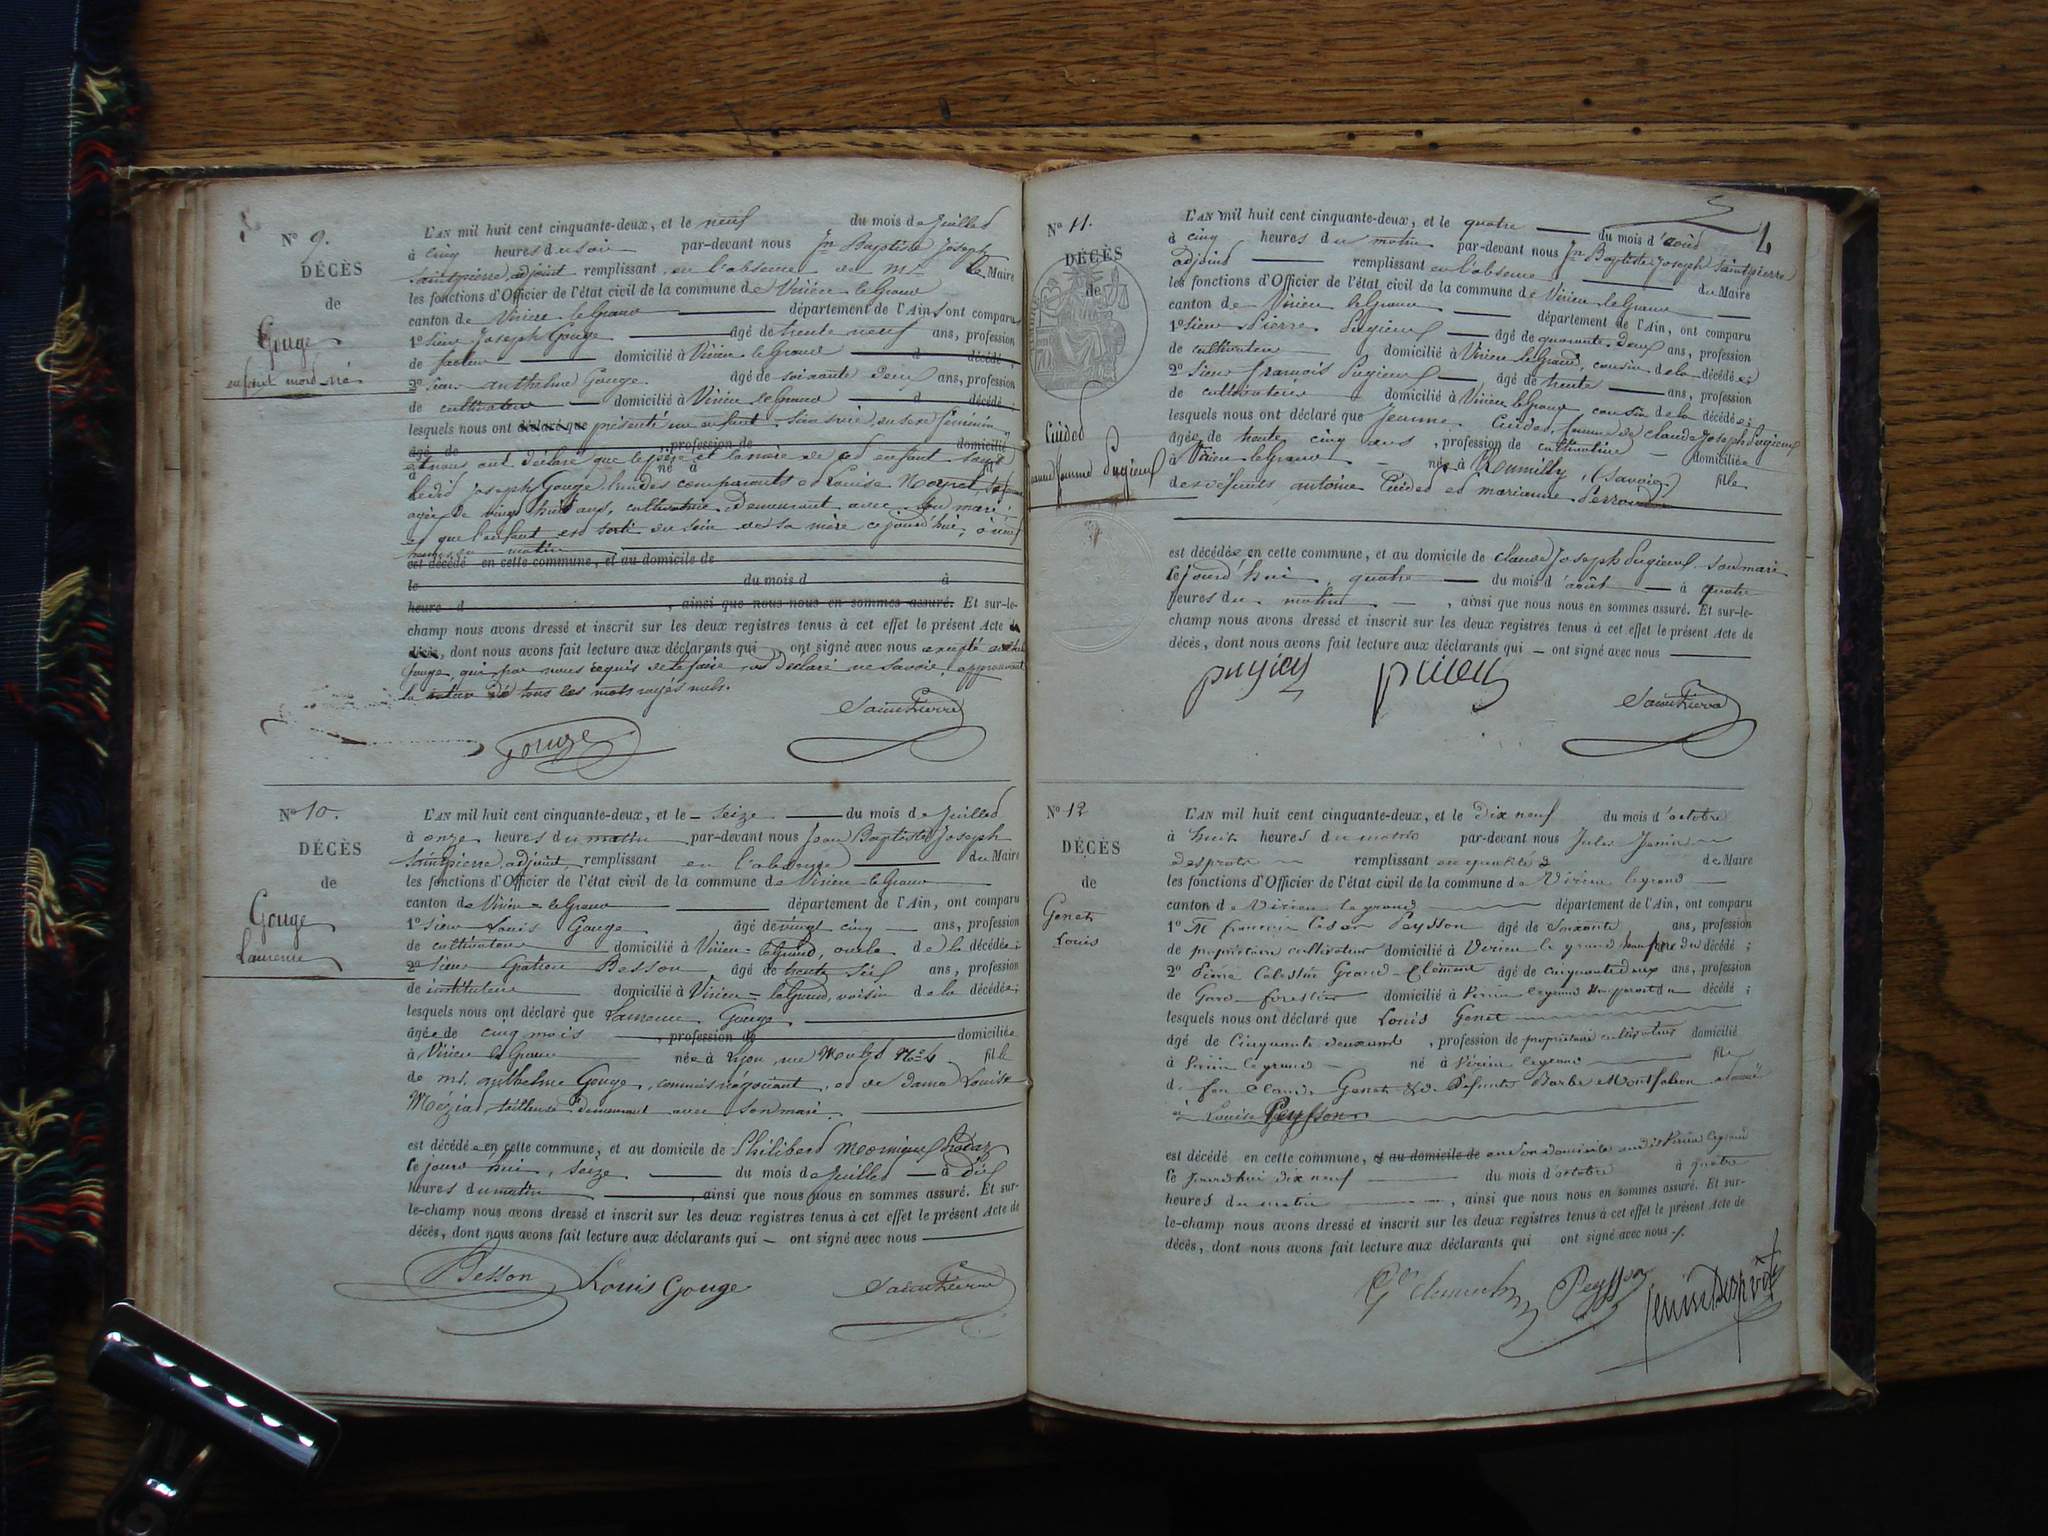 N° 9.
DÉCÈS
de
Gouge
enfant mort né
L'AN mil huit cent cinquante-deux, et le neuf du mois de Juillet
à cinq heures du soir par-devant nous Jn Baptiste Joseph
Saintpierre adjoint remplissant en l'absence de Mr. le Maire
les fonctions d'Officier de l'état civil de la commune de Virieu le Grand
canton de Virieu le Grand département de l'Ain, sont comparu
1° Sieur Joseph Gouge âgé de trente neuf ans, profession
de facteur domicilié à Virieu le Grand d décédé ;
2° Sieur anthelme Gouge âgé de soixante deux ans, profession
de cultivateur domicilié à Virieu le Grand d décédé ;
lesquels nous ont déclaré que présenté un enfant sans vie, du sexe féminin
âgé de , profession de domicilié
et nous ont déclaré que le père et la mère de cet enfant sont
à né à fil
ledit Joseph Gouge l'un des comparants et Louise
agée de vingt huit ans, cultivatrice, demeurant avec son mari,
et que l'enfant est sorti du sein de sa mère ce jourd'hui, à neuf
heures du matin
est décédé en cette commune, et au domicile de
le du mois d à
heure d , ainsi que nous nous en sommes assuré. Et sur-le-
champ nous avons dressé et inscrit sur les deux registres tenus à cet effet le présent Acte de
décès, dont nous avons fait lecture aux déclarants qui ont signé avec nous excepté anthelme
Gouge, qui par nous requis de le faire, a déclaré ne savoir. approuvant
la rature de tous les mots rayés nuls.
Gouge
SaintPierre
N° 10.
DÉCÈS
de
Gouge
Laurence
L'AN mil huit cent cinquante-deux, et le seize du mois de Juillet
à onze heures du matin par-devant nous Jean Baptiste Joseph
Saintpierre adjoint, remplissant en l'absence du Maire
les fonctions d'Officier de l'état civil de la commune de Virieu-le-Grand
canton de Virieu-le Grand département de l'Ain, ont comparu
1° Sieur Louis Gouge âgé de vingt cinq ans, profession
de cultivateur domicilié à Virieu-le Grand, oncle de la décédée ;
2° Sieur Gratien Besson âgé de trente six ans, profession
de instituteur domicilié à Virieu-le Grand, voisin de la décédée ;
lesquels nous ont déclaré que Laurence Gouge
âgée de cinq mois , profession de domiciliée
à Virieu le Grand née à Lyon, rue fille
de Mr. anthelme Gouge, commis négociant, et de dame Louise
Méziat tailleuse demeurant avec son mari
est décédée en cette commune, et au domicile de Philibert
ce jourd'hui, seize du mois de Juillet à dix
heures du matin , ainsi que nous nous en sommes assuré. Et sur-
le-champ nous avons dressé et inscrit sur les deux registres tenus à cet effet le présent Acte de
décès, dont nous avons fait lecture aux déclarants qui ont signé avec nous
Besson Louis Gouge SaintPierre
4
N° 11.
DÉCÈS
de
Cuidet
Jeanne femme Pugieux
L'AN mil huit cent cinquante-deux, et le quatre du mois d'août
à cinq heures du matin par-devant nous Jn Baptiste Joseph Saintpierre
adjoint remplissant en l'absence du Maire
les fonctions d'Officier de l'état civil de la commune de Virieu le Grand
canton de Virieu le Grand département de l'Ain, ont comparu
1° Sieur Pierre Pugieux âgé de quarante deux ans, profession
de cultivateur domicilié à Virieu le Grand, cousin de la décédée ;
2° Sieur françois Pugieux âgé de trente ans, profession
de cultivateur domicilié à Virieu le Grand, cousin de la décédée ;
lesquels nous ont déclaré que Jeanne Cuidet, femme de Claude Joseph Pugieux
âgée de trente cinq ans , profession de cultivatrice domiciliée
à Virieu le Grand née à Roumilly, (Savoie) fille
des défunts antoine Cuidet et marianne Perroud
est décédée en cette commune, et au domicile de Claude Joseph Pugieux son mari
ce jourd'hui, quatre du mois d'août à quatre
heures du matin , ainsi que nous nous en sommes assuré. Et sur-le-
champ nous avons dressé et inscrit sur les deux registres tenus à cet effet le présent Acte de
décès, dont nous avons fait lecture aux déclarants qui ont signé avec nous
SaintPierre
N° 12
DÉCÈS
de
Genet
Louis
L'AN mil huit cent cinquante-deux, et le dix neuf du mois d'octobre
à huit heures du matin par-devant nous Jules Jenin
Desprots remplissant en qualité de Maire
les fonctions d'Officier de l'état civil de la commune de Virieu le grand
canton de Virieu le grand département de l'Ain, ont comparu
1° Mr françois César Peysson âgé de soixante ans, profession
de propriétaire cultivateur domicilié à Virieu le grand beau frère du décédé ;
2° Pierre Celestin Grand-Clément âgé de cinquante deux ans, profession
de Garde forestier domicilié à Virieu le grand non parent du décédé ;
lesquels nous ont déclaré que Louis Genet
âgé de cinquante deux ans , profession de propriétaire cultivateur domicilié
à Virieu le grand né à Virieu le grand fils
de feu Claude Genet & de défunte Barbe Montfalcon
à Louise Peysson
est décédé en cette commune, et au domicile de en son domicile audit Virieu le grand
le jourd'hui dix neuf du mois d'octobre à quatre
heures du matin , ainsi que nous nous en sommes assuré. Et sur-
le-champ nous avons dressé et inscrit sur les deux registres tenus à cet effet le présent Acte de
décès, dont nous avons fait lecture aux déclarants qui ont signé avec nous
Peysson Jenin Desprots